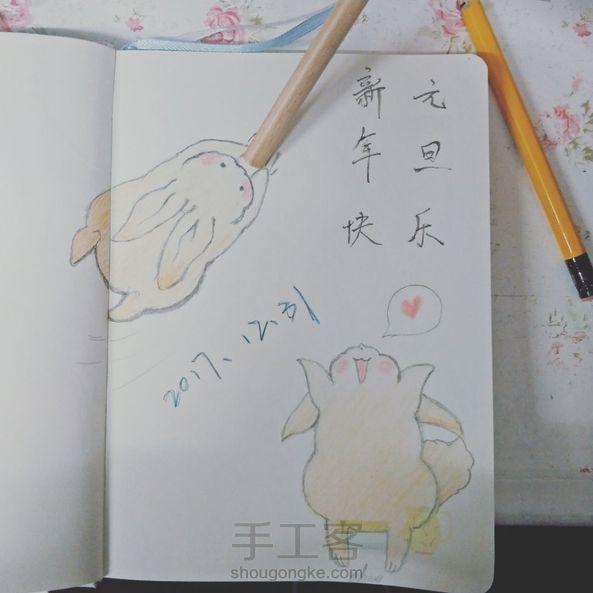 元旦乐
新年快
2017.12.31
手工客
shougongke.com